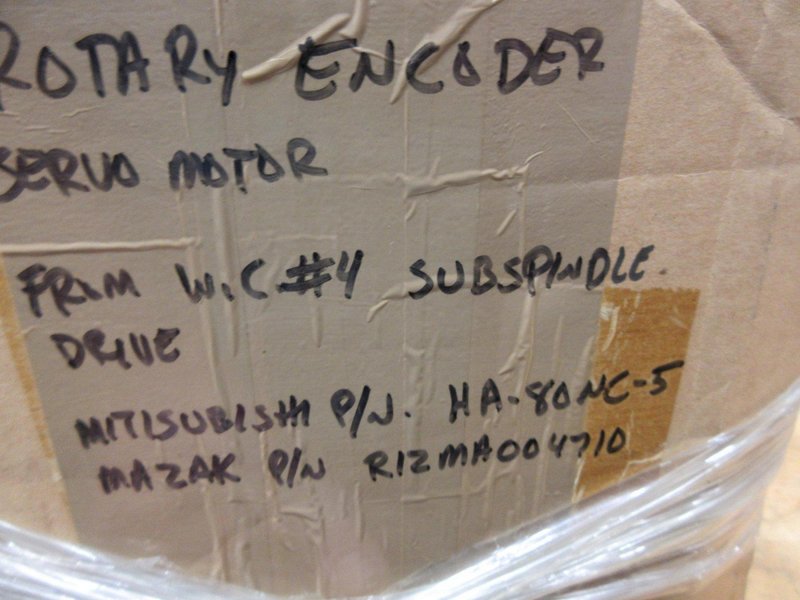 ROTARY ENCODER
SERVO MOTOR
FROM W.C #4 SUBSPINDLE.
DRIVE
MITISUBISHI P/N. HA-80NC-5
MAZAK P/N R12MA004710